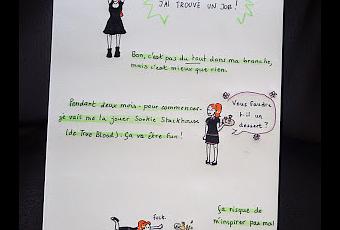 J'AI TROUVÉ UN JOB !
Bon, c'est pas du tout dans ma branche,
mais c'est mieux que rien.
Pendant deux mois - pour commencer -
je vais me la jouer Sookie Stackhouse
(de True Blood). Ça va être fun !
Vous faudra
t-il un
dessert ?
fuck.
Ça risque de
m'inspirer pas mal